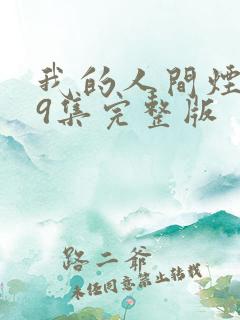 我的人间烟
9集完整版
路二爷
未经同意禁止转载